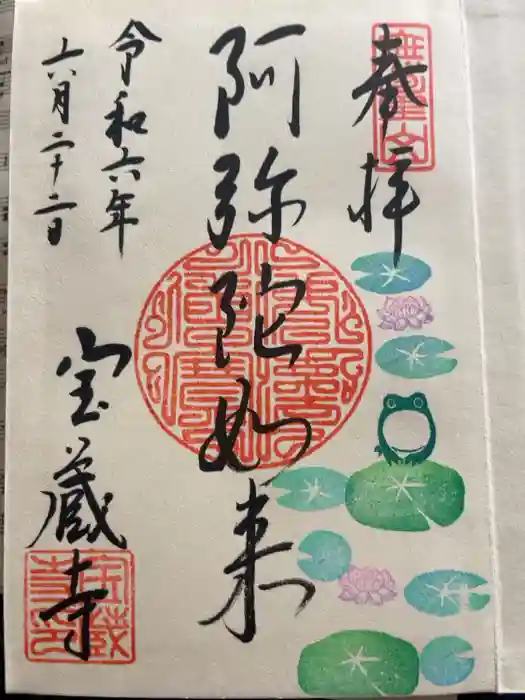 奉拝
阿弥陀如来
令和六年
六月二十二日
宝蔵寺